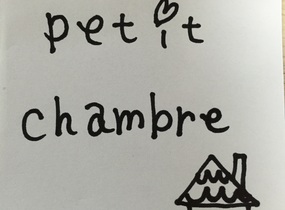 petit
chambre